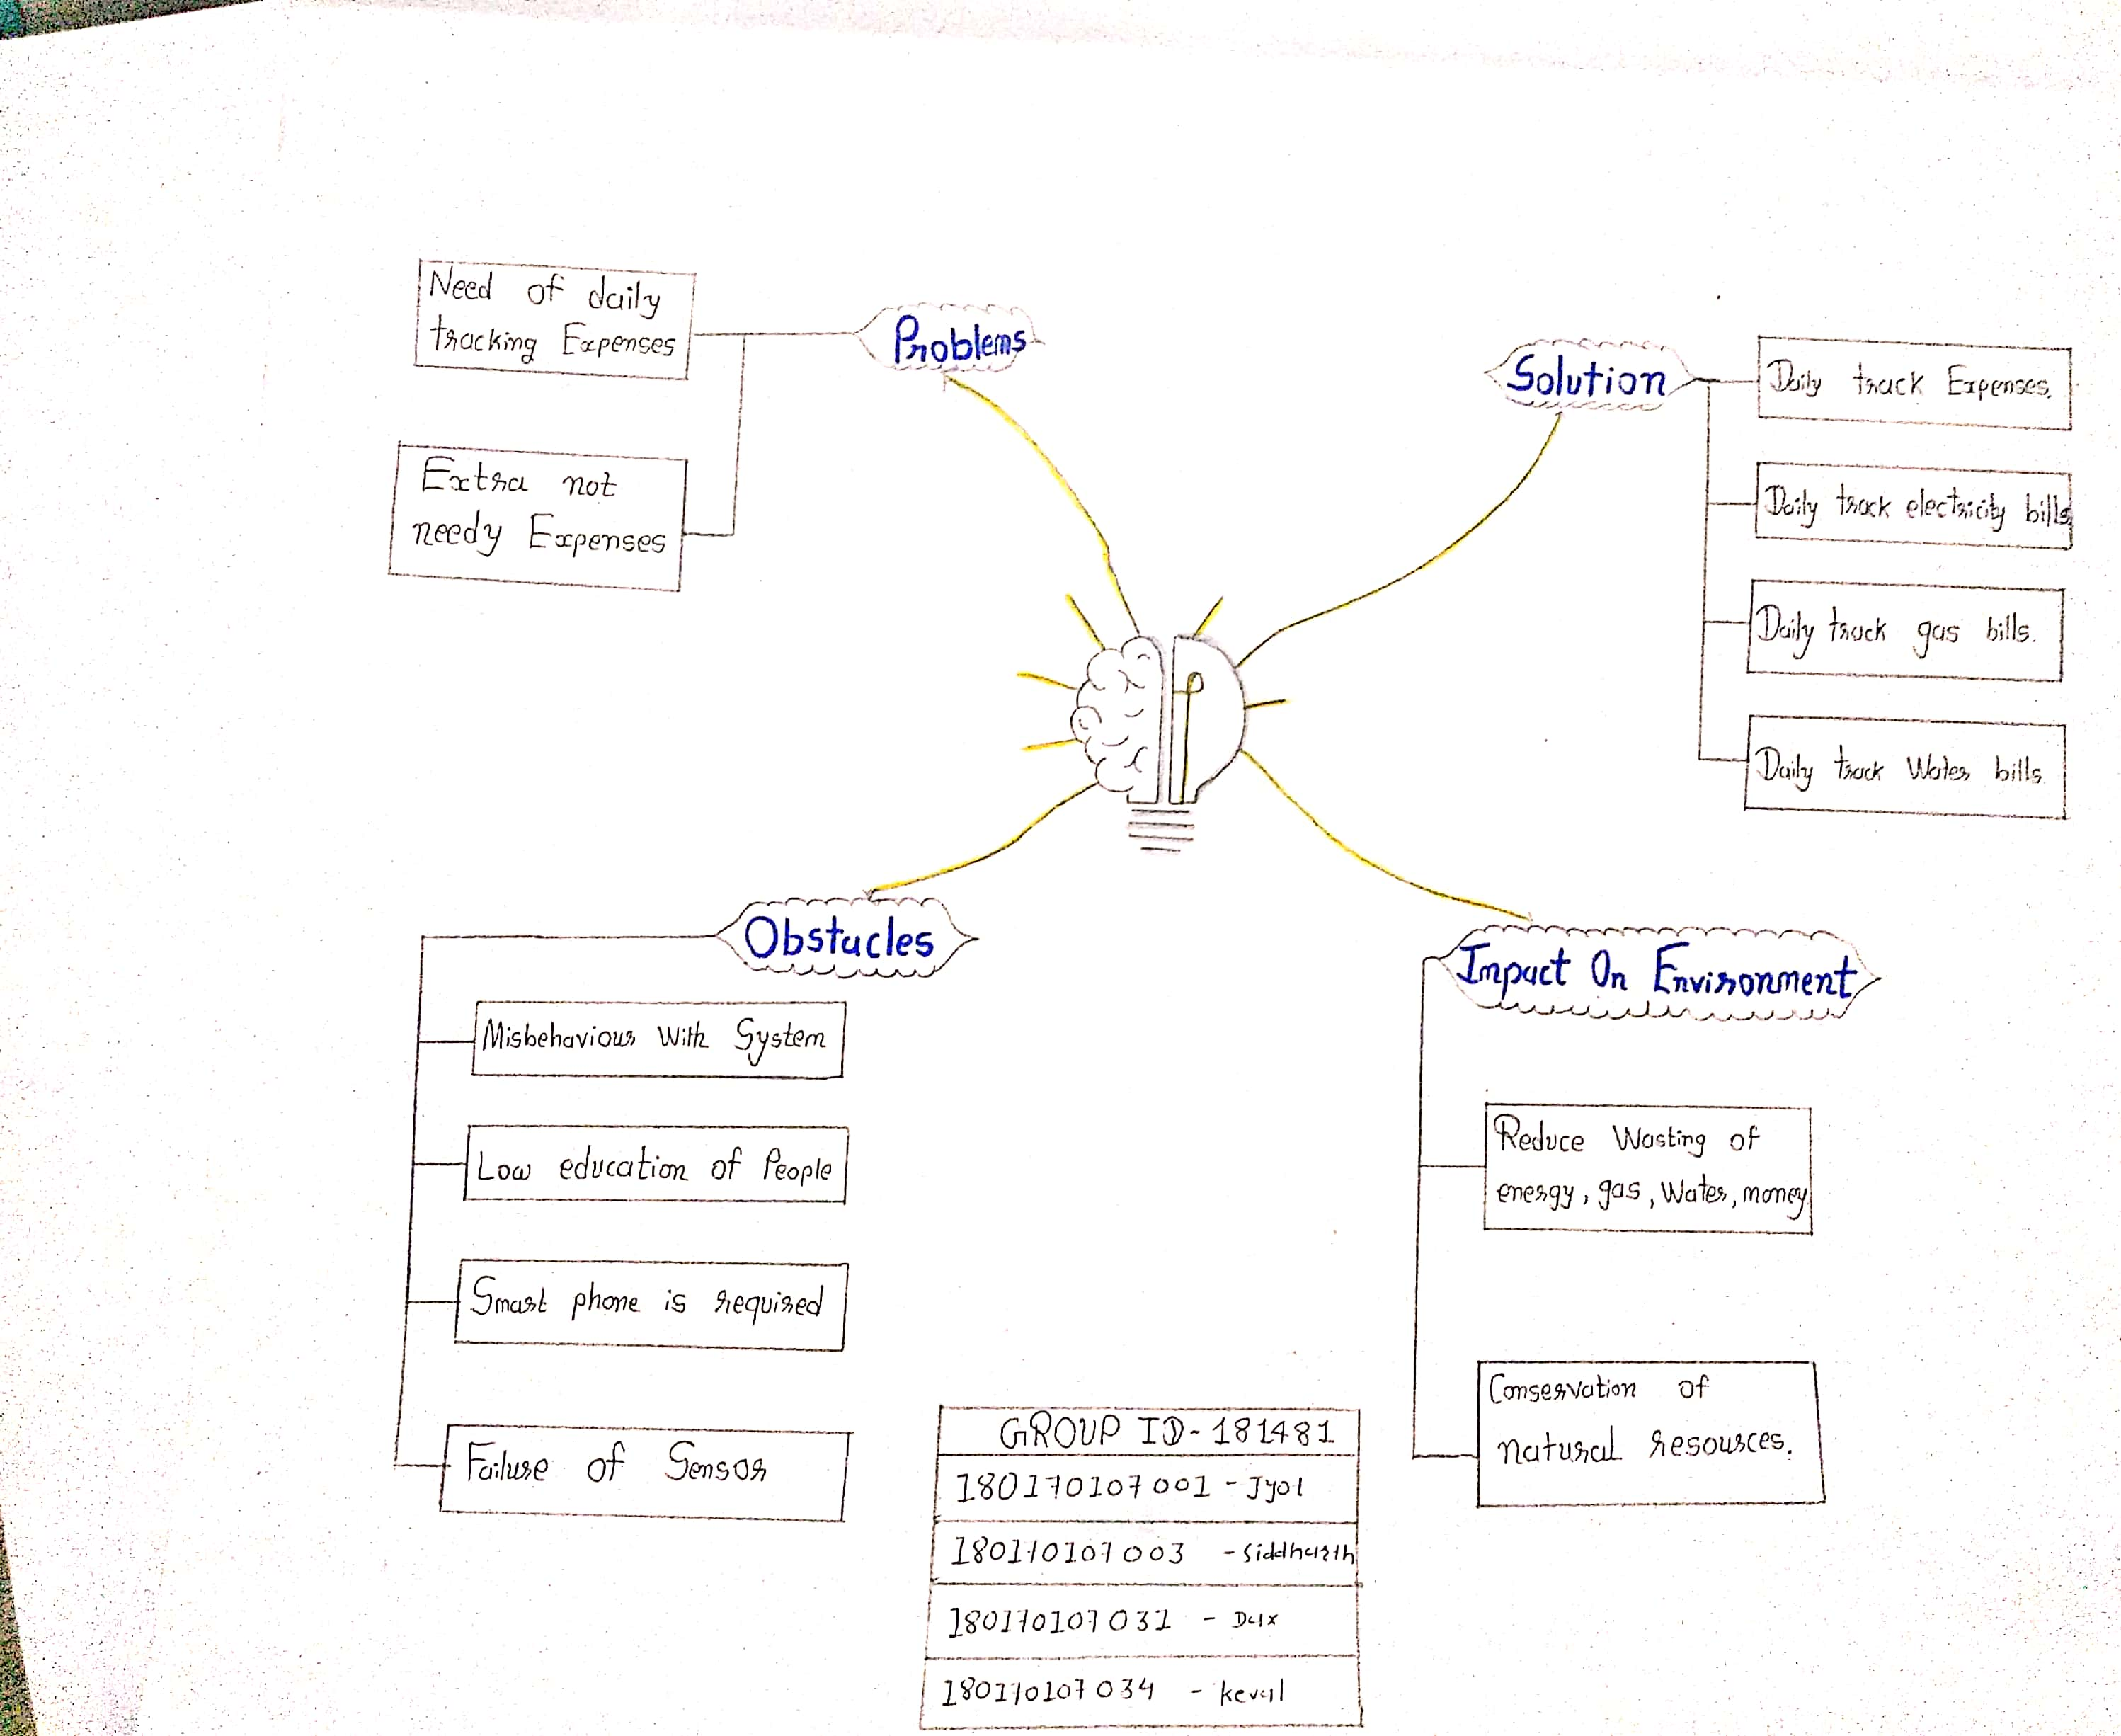 Problems
Need of daily
tracking Expenses
Extra not
needy Expenses
Solution
Daily track Expenses.
Daily track electricity bills
Daily track gas bills.
Daily track Water bills
Obstacles
Misbehaviour With System
Low education of People
Smart phone is required
Failure of Sensor
Impact On Environment
Reduce Wasting of
energy, gas, Water, money
Conservation of
natural resources.
GROUP ID- 181481
180170107001 - Jyol
180170107003 - Siddharth
180170107031 - Dax
180170107034 - keval